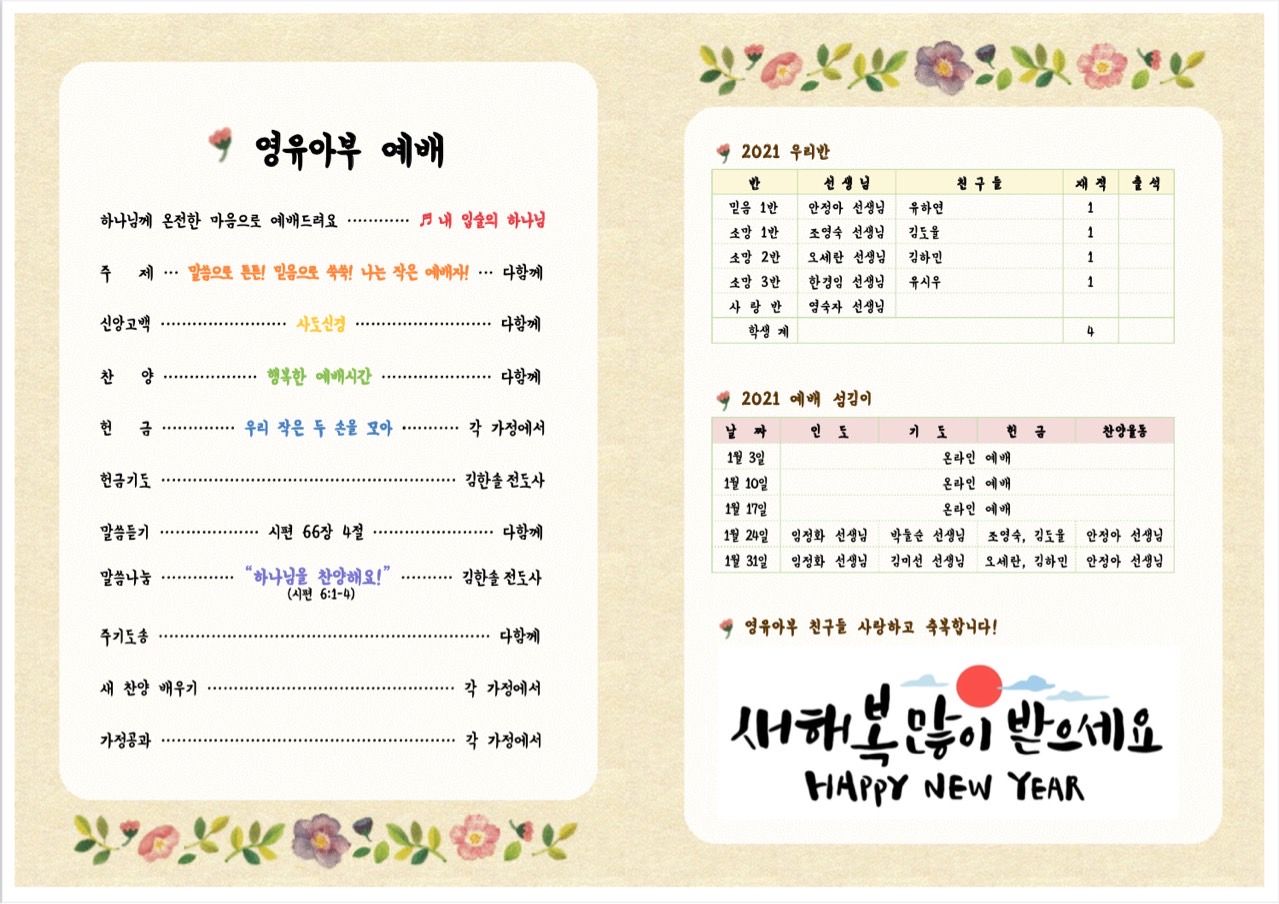 영유아부 예배
하나님께 온전한 마음으로 예배드려요 ············ ♬ 내 입술의 하나님
주 제 ··· 말씀으로 튼튼! 믿음으로 쑥쑥! 나는 작은 예배자! ··· 다함께
신앙고백 ························ 사도신경 ························ 다함께
찬 양 ·················· 행복한 예배시간 ····················· 다함께
헌 금 ·············· 우리 작은 두 손을 모아 ··········· 각 가정에서
헌금기도 ························································ 김한솔 전도사
말씀듣기 ··················· 시편 66장 4절 ······················· 다함께
말씀나눔 ·············· “하나님을 찬양해요!” ·········· 김한솔 전도사
(시편 6:1-4)
주기도송 ································································ 다함께
새 찬양 배우기 ················································ 각 가정에서
가정공과 ························································· 각 가정에서
2021 우리반
반 선생님 친구들 재적 출석
믿음 1반 안정아 선생님 유하연 1
소망 1반 조영숙 선생님 김도율 1
소망 2반 오세란 선생님 김하민 1
소망 3반 한경임 선생님 유시우 1
사 랑 반 염숙자 선생님
학생 계 4
2021 예배 섬김이
날 짜 인 도 기 도 헌 금 찬양율동
1월 3일 온라인 예배
1월 10일 온라인 예배
1월 17일 온라인 예배
1월 24일 임정화 선생님 박돌순 선생님 조영숙, 김도율 안정아 선생님
1월 31일 임정화 선생님 김미선 선생님 오세란, 김하민 안정아 선생님
영유아부 친구들 사랑하고 축복합니다!
새해 복 많이 받으세요
HAPPY NEW YEAR